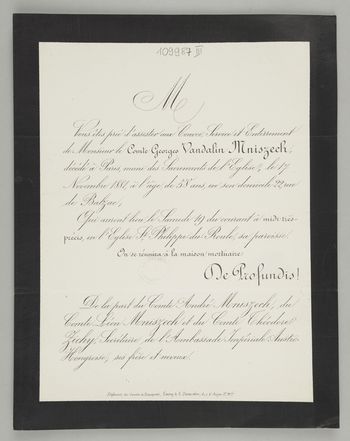 109987 III
M
Vous êtes prié d'assister aux Convoi, Service et Enterrement
de Monsieur le Comte Georges Vandalin Mniszech,
décédé à Paris, muni des Sacrements de l'Église, le 17
Novembre 1881, à l'âge de 58 ans, en son domicile 22, rue
de Balzac;
Qui auront lieu le Samedi 19 du courant à midi très-
précis, en l'Église St Philippe-du-Roule, sa paroisse.
On se réunira à la maison mortuaire
De Profundis!
De la part du Comte André Mniszech, du
Comte Léon Mniszech et du Comte Théodore
Zichy, Secrétaire de l'Ambassade Impériale Austro
Hongroise, ses frère et neveux.